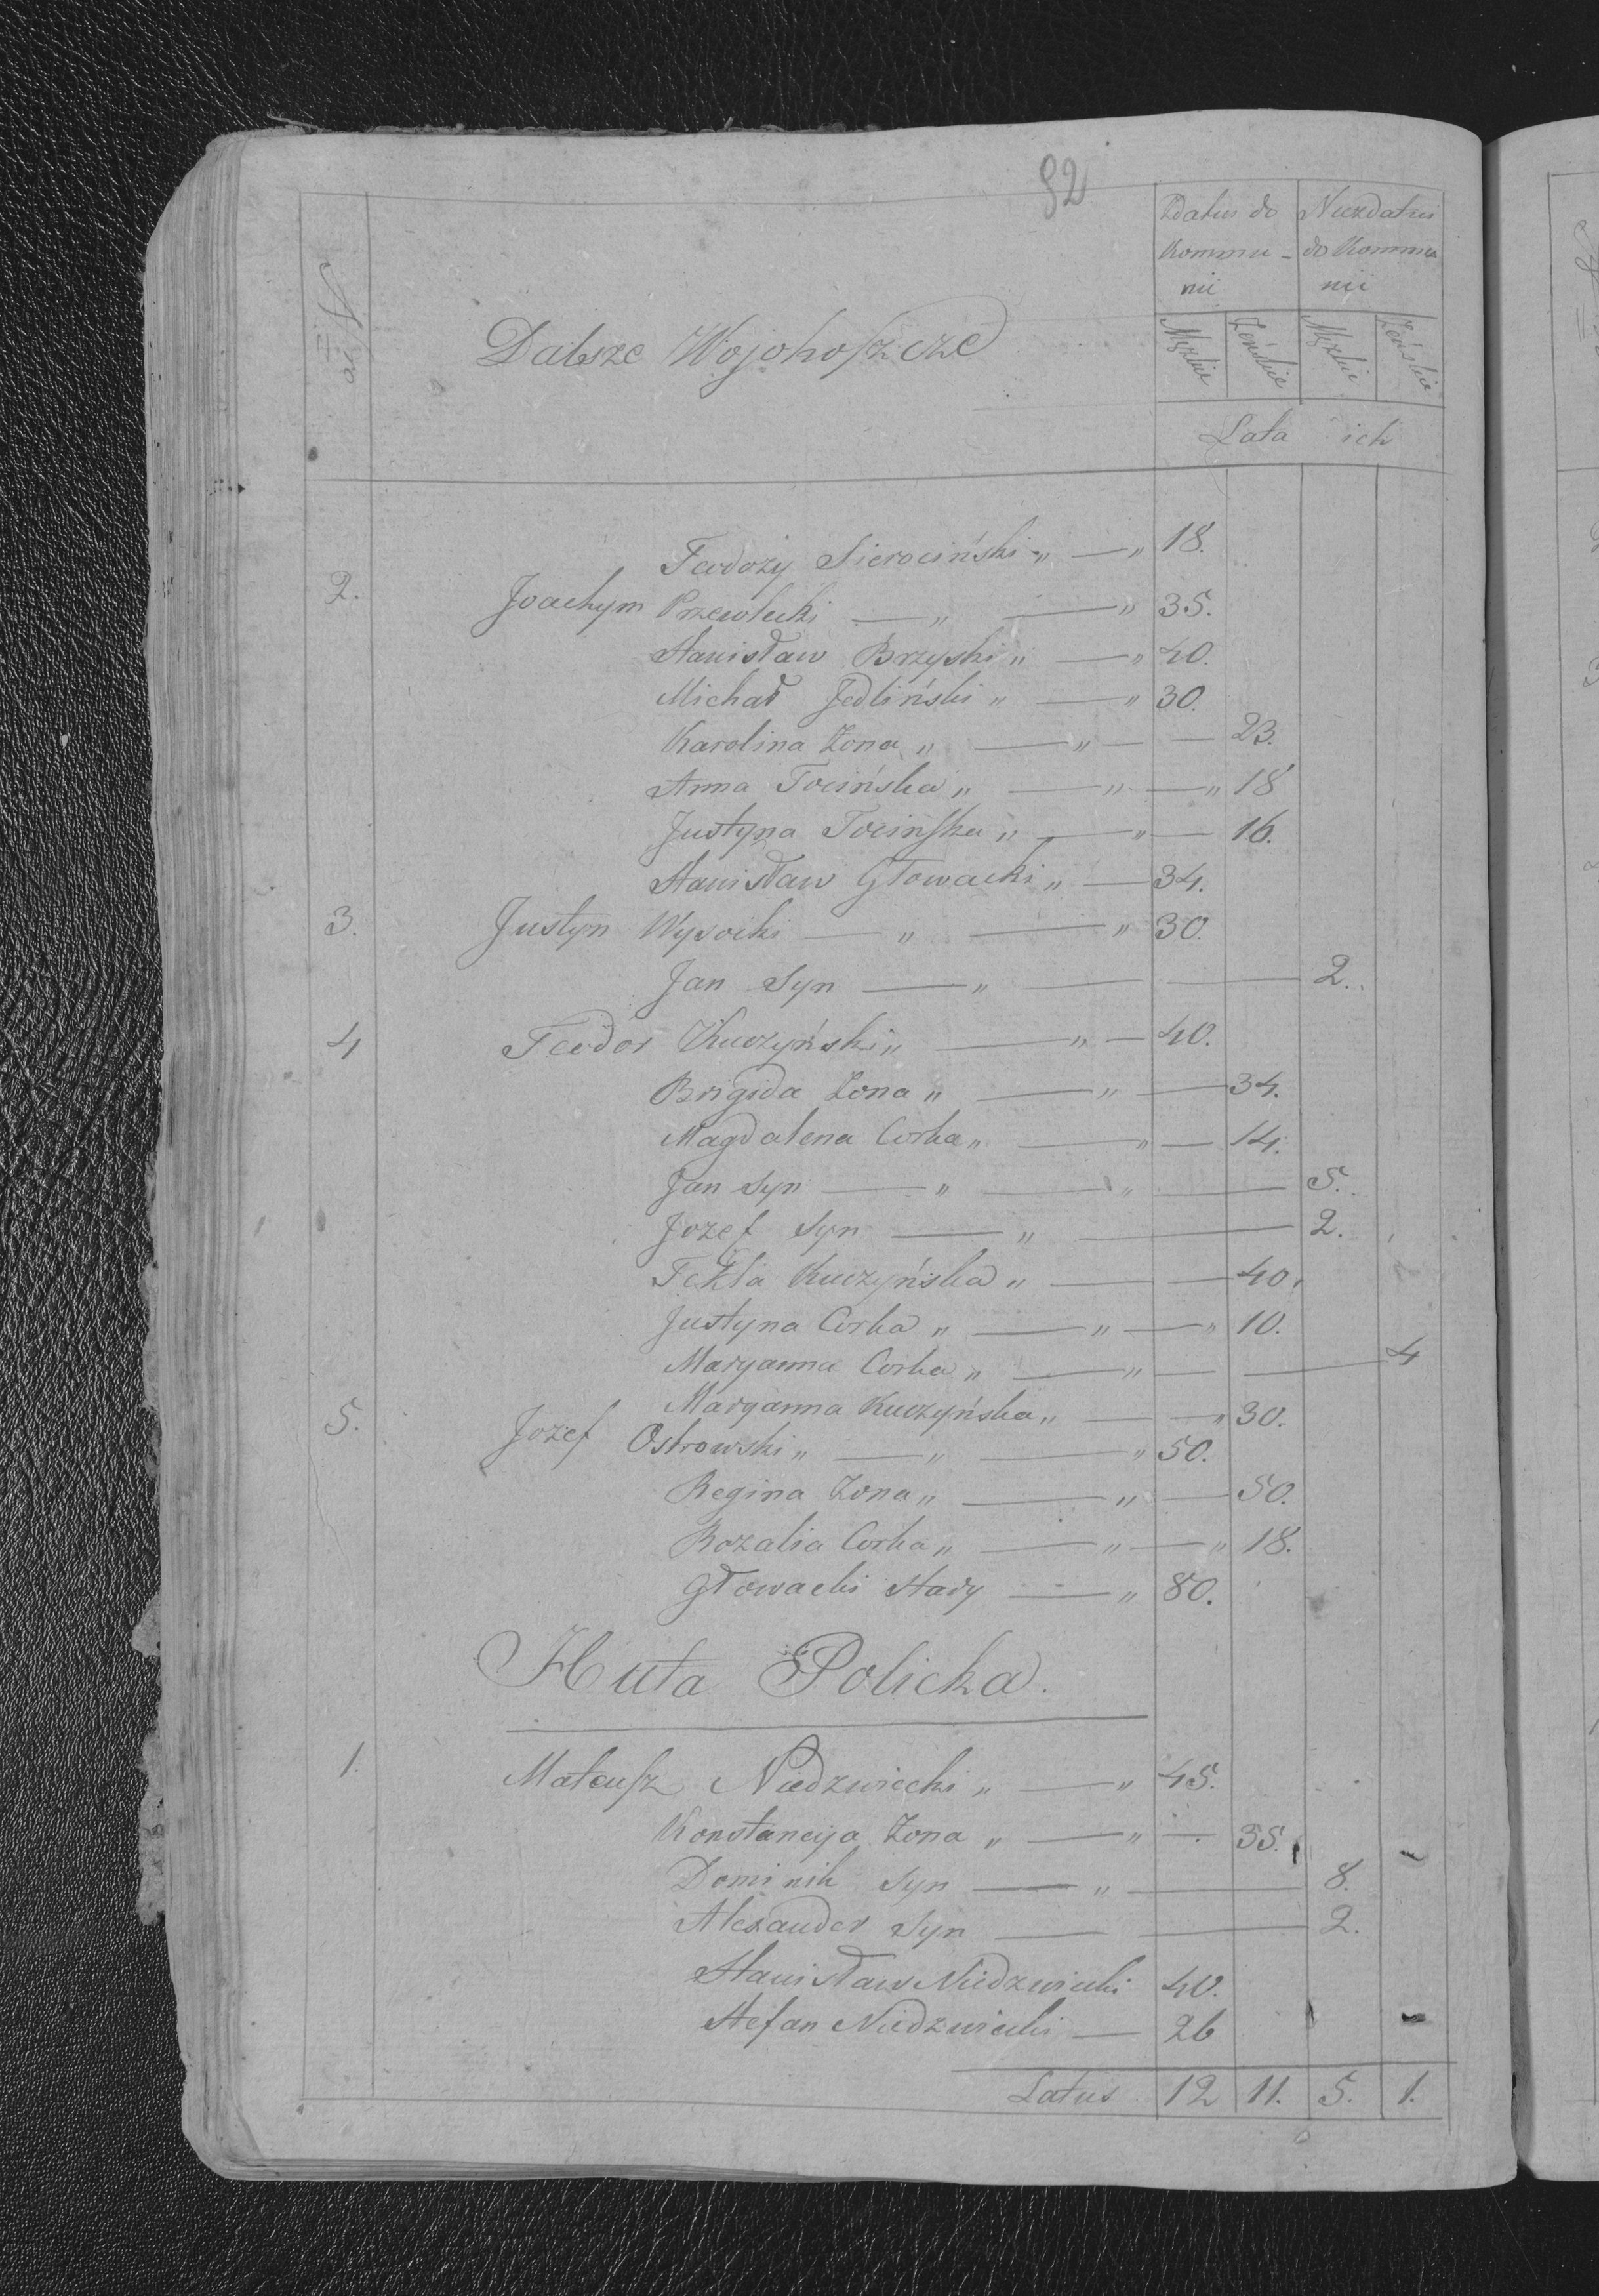 92
№
Zdatni do Niezdatni
Kommu- do Kommu
nii nii
Męzkie Zeńskie Męzkie Zeńskie
Dalsze Wojohoszcze
Lata ich
Teodozy Sierociński 18.
2. Joachym Przewlocki 35.
Stanisław Brzyski 40.
Michał Jedliński 30.
Karolina Zona 23.
Anna Tocińska 18
Justyna Tocińska 16.
Stanisław Głowacki 34.
3. Justyn Wysocki 30.
Jan Syn 2.
4 Teodor Kuczyński 40.
Brigida Zona 34.
Magdalena Corka 14.
Jan Syn 5.
Jozef Syn 2.
Tekla Kuczyńska 40.
Justyna Corka 10.
Maryanna Corka 4
Maryanna Kuczyńska 30.
5. Jozef Ostrowski 50.
Regina Zona 50.
Rozalia Corka 18.
Głowacki Stary 80.
Huta Policka.
1. Mateusz Niedzwiecki 45.
Konstancya Zona 35.
Dominik Syn 8.
Alexander Syn 2.
Stanisław Niedzwiecki 40.
Stefan Niedzwiecki 26
Latus 12 11. 5. 1.